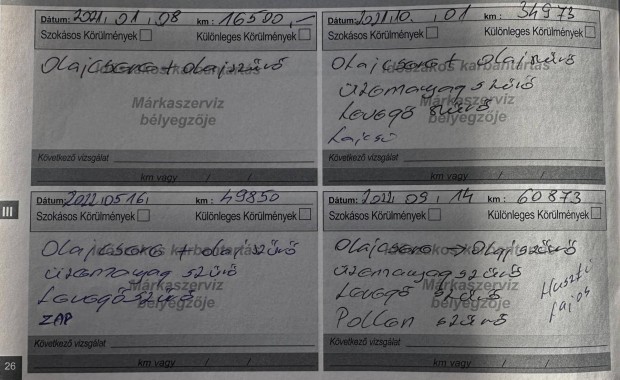 Dátum: 2021.01.08 km: 16500,-
Szokásos Körülmények Különleges Körülmények
Olajcsere + olajszűrő
Időszakos karbantartás
Márkaszerviz
bélyegzője
Következő vizsgálat
km vagy / /
Dátum: 2021.10.01 km: 34973
Szokásos Körülmények Különleges Körülmények
Olajcsere + Olajszűrő
Időszakos karbantartás
üzemanyag szűrő
Márkaszerviz
Levegő szűrő
bélyegzője
Lajcsi
Következő vizsgálat
km vagy / /
III
Dátum: 2022.05.16. km: 49850
Szokásos Körülmények Különleges Körülmények
Olajcsere + olajszűrő
Időszakos karbantartás
üzemanyag szűrő
Márkaszerviz
Levegőszűrő
bélyegzője
ZAP
Következő vizsgálat
km vagy / /
Dátum: 2022.09.14 km: 60873
Szokásos Körülmények Különleges Körülmények
Olajcsere → Olajszűrő
Időszakos karbantartás
üzemanyag szűrő
Márkaszerviz
Levegő szűrő
bélyegzője
Pollen szűrő
Huszti
Lajos
Következő vizsgálat
km vagy / /
26